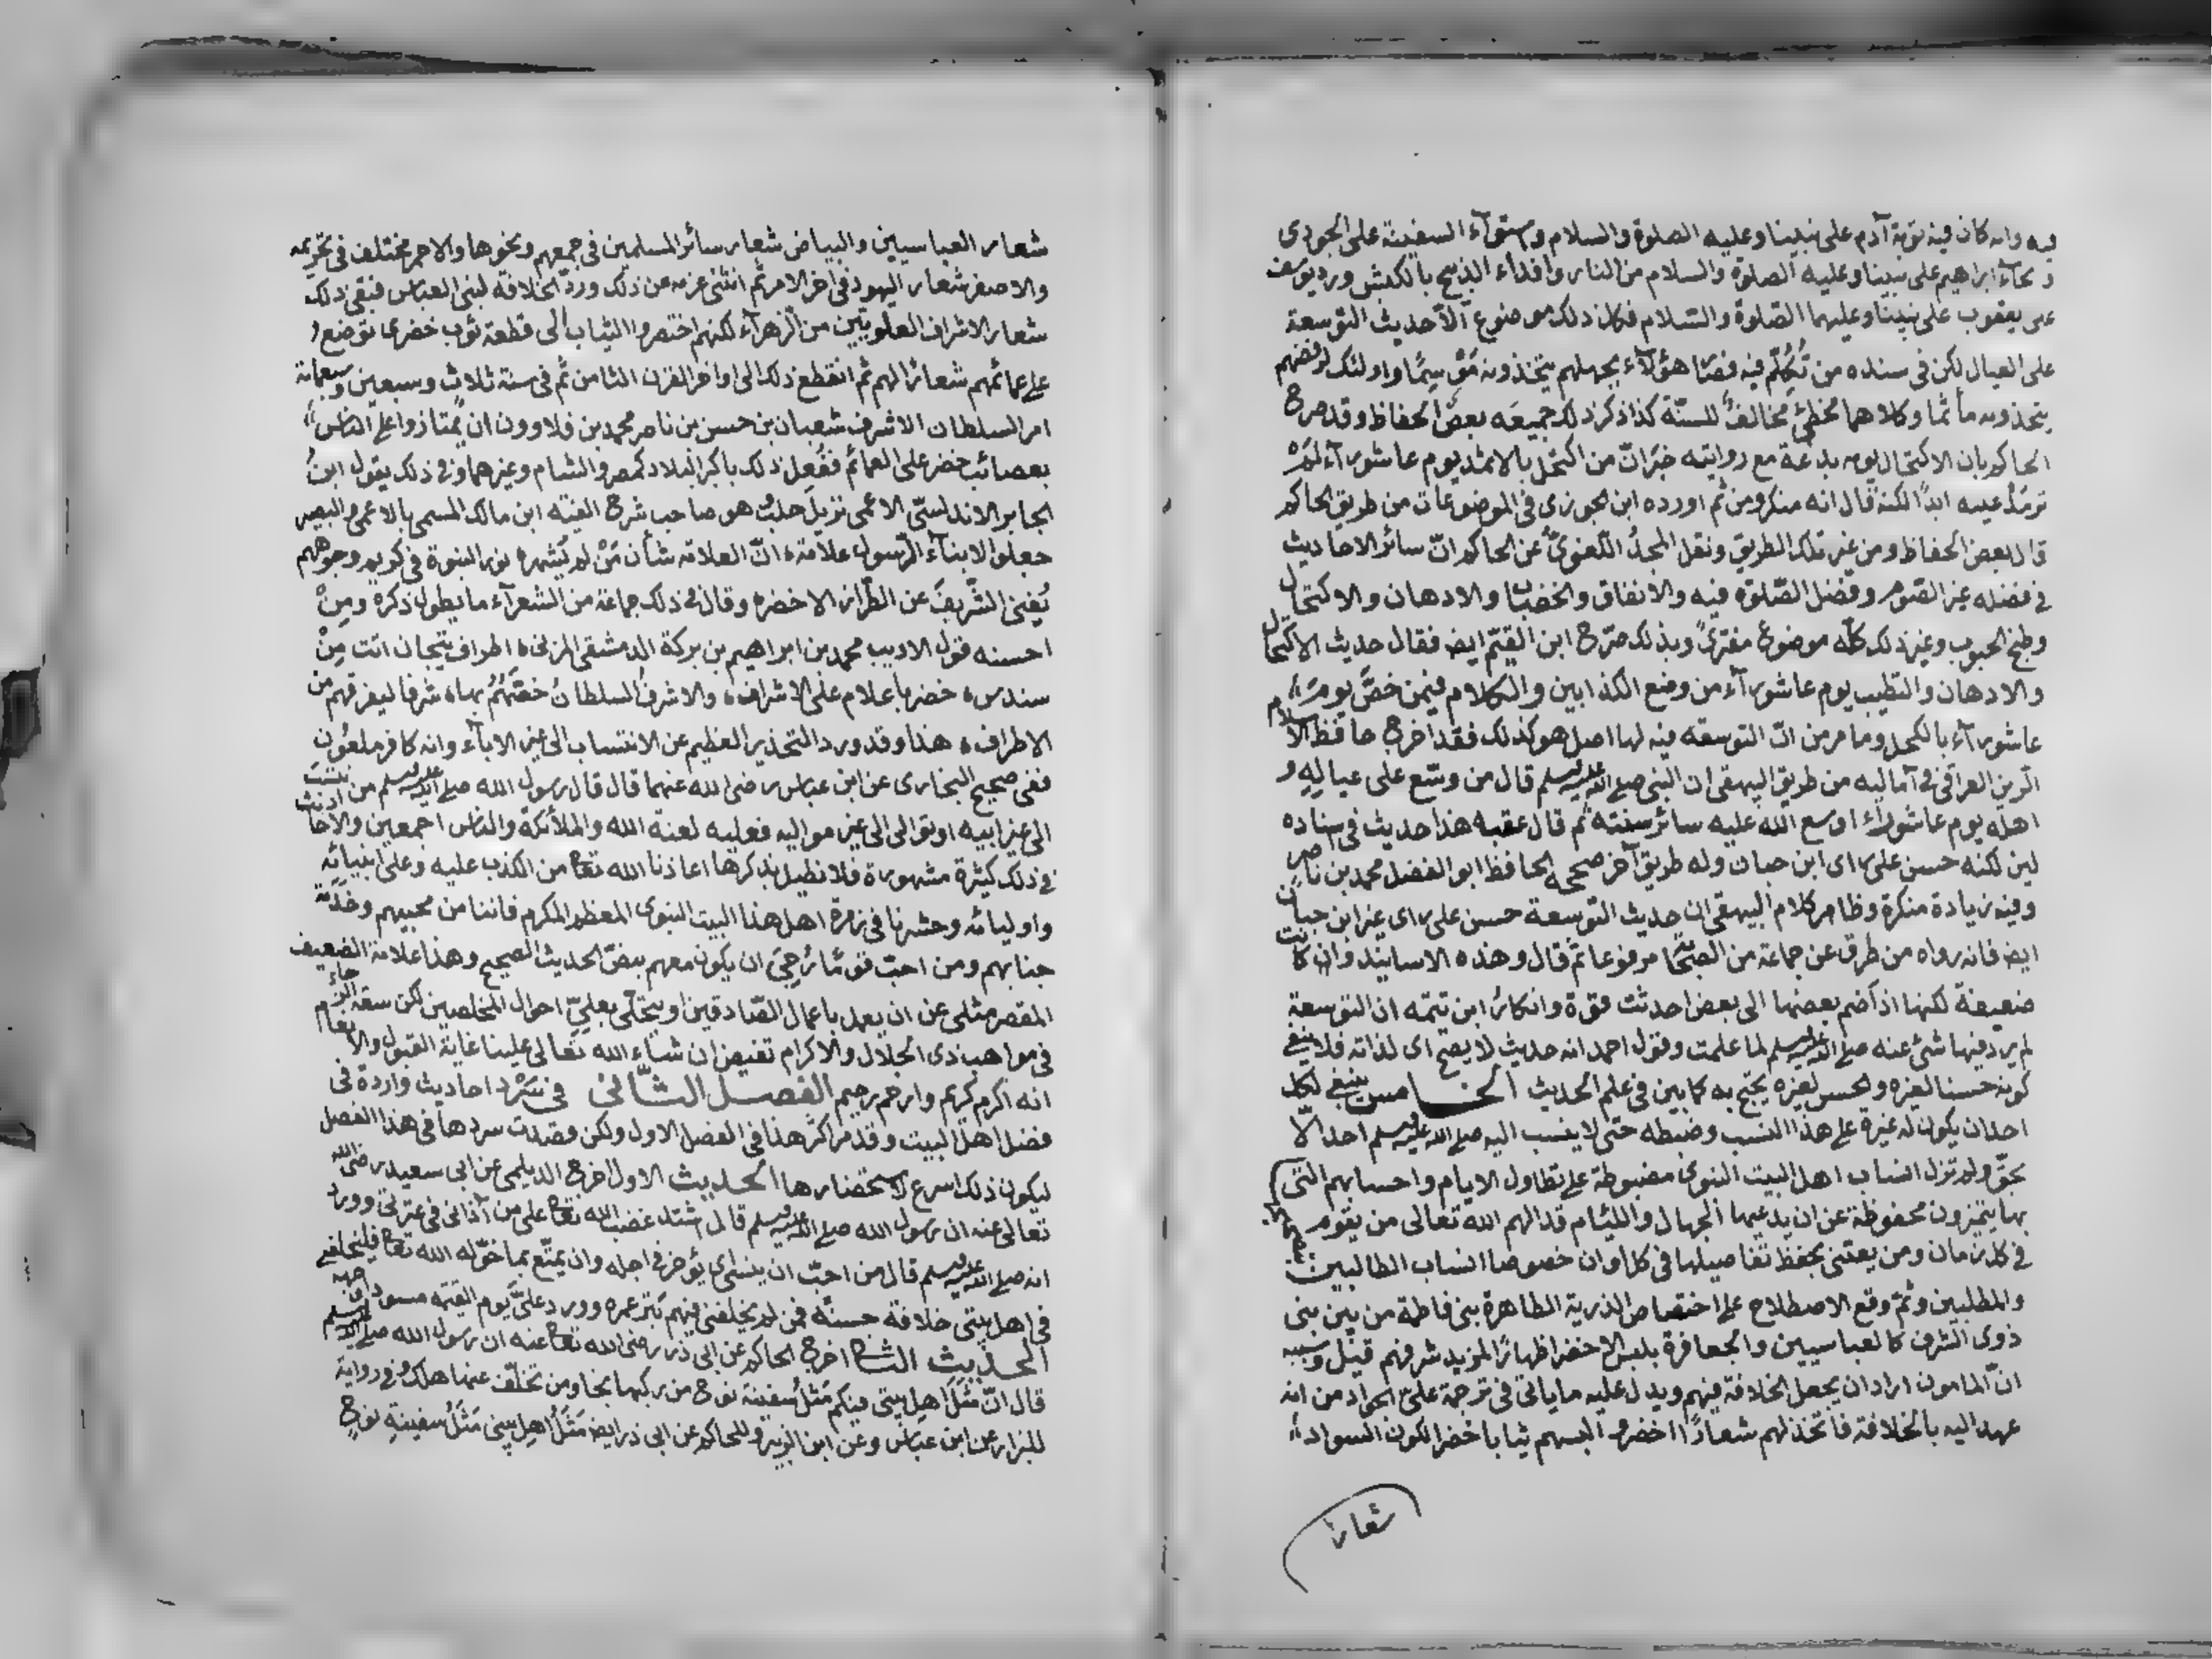 فيه وانه كان فيه توبة آدم على نبينا وعليه الصلوة والسلام واستوآء السفينة على الجودى
ونجآة ابراهيم على نبينا وعليه الصلوة والسلام من النار وافدآء الذبيح بالكبش ورد يوسف
على يعقوب على نبينا وعليهما الصّلوة والسّلام فكل ذلك موضوع الّا حديث التوسعة
على العيال لكن فى سنده من تُكُلّم فيه فصار هؤلآء بجهلهم يتخذونه موسِمًا واولئك لرفضهم
يتخذونه مأتما وكلاهما مخطئ مخالفٌ للسنّة كذا ذكر ذلك جميعَه بعضُ الحفاظ وقد صرح
الحاكم بان الاكتحال يومه بدعة مع روايته خبرَ انّ من اكتحل بالاثمد يوم عاشورآء لم
ترمَدْ عينه ابدًا لكنه قال انه منكر ومن ثم اورده ابن الجوزى فى الموضوعات من طريق الحاكم
قال بعض الحفاظ ومن غير تلك الطريق ونقل المجدُ اللغوىّ عن الحاكم انّ سائر الاحاديث
فى فضله غير الصّوم وفضل الصّلوة فيه والانفاق والخضاب والادهان والاكتحال
وطبخ الحبوب وغير ذلك كلّه موضوع مفترىً وبذلك صرّح ابن القيّم ايض فقال حديث الاكتحال
والادهان والتطيب يوم عاشورآء من وضع الكذابين والكلام فيمن خصّ يوم
عاشورآء بالكحل وما مر من انّ التوسعة فيه لها اصل هو كذلك فقد اخرج حافظ الاسلام
الزين العراقى فى آماليه من طريق البيهقى ان النبى صلى الله عليه وسلم قال من وسّع على عياله و
اهله يوم عاشورآء اوسع الله عليه سائر سنته ثم قال عقبه هذا حديث فى اسناده
لين لكنه حسن على راى ابن حبان وله طريق آخر صححه الحافظ ابو الفضل محمد بن ناصر
وفيه زيادة منكرة وظاهر كلام البيهقى ان حديث التوسعة حسن على راى غير ابن حبان
ايض فانه رواه من طرق عن جماعة من الصحابة مرفوعا ثم قال وهذه الاسانيد وان كانت
ضعيفة لكنها اذا ضم بعضها الى بعض احدثت قوة وانكارُ ابن تيميه ان التوسعة
لم يرد فيها شئ عنه صلى الله عليه وسلم لما علمت وقول احمد انه حديث لا يصح اى لذاته فلا ينفى
كونه حسنا لغيره والحسن لغيره يحتج به كما بين فى علم الحديث الخامس ينبغى لكل
احد ان يكون له غيرة على هذا النسب وضبطه حتى لا ينسب اليه صلى الله عليه وسلم احد الّا
بحقّ ولم تزل انساب اهل البيت النبوى مضبوطة على تطاول الايام واحسابهم التى
بها يتميزون محفوظة عن ان يدعيها الجهال واللئام قد الهم الله تعالى من يقوم
فى كل زمان ومن يعتنى بحفظ تفاصيلها فى كل اوان خصوصا انساب الطالبين
والمطلبين وثم وقع الاصطلاح على اختصاص الذرية الطاهرة بنى فاطمة من بين بنى
ذوى الشرف كالعباسيين والجعافرة بلبس الاخضر اظهارًا لمزيد شرفهم قيل وسببه
انّ المامون اراد ان يجعل الخلافة فيهم ويدل عليه ما ياتى فى ترجمة علىّ الجواد من انه
عهد اليه بالخلافة فاتخذ لهم شعارًا اخضر والبسهم ثيابا خضرا لكون السواد
شعار
شعار العباسيين والبياض شعار سائر المسلمين فى جمعهم ونحوها والاحمر مختلف فى تحريمه
والاصفر شعار اليهود فى اخر الامر ثم انثنى عزمه عن ذلك وردّ الخلافة لبنى العباس فبقى ذلك
شعار الاشراف العلويّين من الزهرآء لكنهم اختصروا الثياب الى قطعة ثوب خضرى توضع
على عمائمهم شعارًا لهم ثم انقطع ذلك الى اواخر القرن الثامن ثم فى سنة ثلاث وسبعين وسبعمائة
امر السلطان الاشرف شعبان بن حسن بن ناصر محمد بن قلاوون ان يمتازوا على الناس
بعصائب خضر على العمائم ففُعِل ذلك باكثر البلاد كمصر والشام وغيرهما وفى ذلك يقول ابنُ
الجابر الاندلسىّ الاعمى نزيلَ حلب هو صاحب شرح الفيّه ابن مالك المسمى بالاعمى والبصير
جعلوا لابنآء الرّسول علامة ، انّ العلامة شأن مَنْ لم يُشهرِ ، نور النبوة فى كريم وجوههم
يُغنى الشّريفَ عن الطّراز الاخضر ، وقال فى ذلك جماعة من الشعرآء ما يطول ذكره ومِنْ
احسنه قول الاديب محمد بن ابراهيم بن بركة الدمشقى المزنى ، اطراف تيجان اتت مِنْ
سندس ، خضر باعلام على الاشراف ، والاشرفُ السلطانُ خصّهُمُ بها ، شرفا ليفرقهم من
الاطراف ، هذا وقد ورد التحذير العظيم عن الانتساب الى غير الابآء وانه كافر ملعون
ففى صحيح البخارى عن ابن عباس رضى الله عنهما قال قال رسول الله صلى الله عليه وسلم من انتسب
الى غير ابيه او توالى الى غير مواليه فعليه لعنة الله والملائكة والناس اجمعين والاحاديث
فى ذلك كثيرة مشهورة فلا نطيل بذكرها اعاذنا الله تعا من الكذب عليه وعلى انبيائه
واوليائه وحشرنا فى زمرة اهل هذا البيت النبوى المعظم المكرم فاننا من محبيهم وخدَمَة
جنابهم ومن احبّ قومًا رُجىَ ان يكون معهم بنصّ الحديث الصحيح وهذا علامة الضعيف
المقصر مثلى عن ان يعمل باعمال الصّادقين او يتحلّى بعلىّ احوال المخلصين لكن سعة الرجاء
فى مواهب ذى الجلال والاكرام تفيض ان شاء الله تعالى علينا غاية القبول والانعام
انه اكرم كريم وارحم رحيم الفصل الثّانى فى سَرْد احاديث واردة فى
فضل اهل البيت وقد مر اكثر هذا فى الفصل الاول ولكن قصدت سردها فى هذا الفصل
ليكون ذلك اسرع لاستحضارها الحديث الاول اخرج الديلمى عن ابى سعيد رضى الله
تعالى عنه ان رسول الله صلى الله عليه وسلم قال اشتد غضب الله تعا على من آذانى فى عترتى وورد
انه صلى الله عليه وسلم قال من احبّ ان ينسئ اى يؤخر فى اجله وان يمتّع بما خوّله الله تعا فليخلفنى
فى اهل بيتى خلافة حسنة فمن لم يخلفنى فيهم بُتر عمره وورد علىّ يوم القيمة مسودا وجهه
الحديث الثانى اخرج الحاكم عن ابى ذر رضى الله تعا عنه ان رسول الله صلى الله عليه وسلم
قال انّ مثَلَ اهل بيتى فيكم مَثَلُ سفينة نوح من ركبها نجا ومن تخلّف عنها هلك وفى رواية
للبزار عن ابن عباس وعن ابن الزبير وللحاكم عن ابى ذر ايض مَثَلُ اهل بيتى مَثَلُ سفينةِ نوح